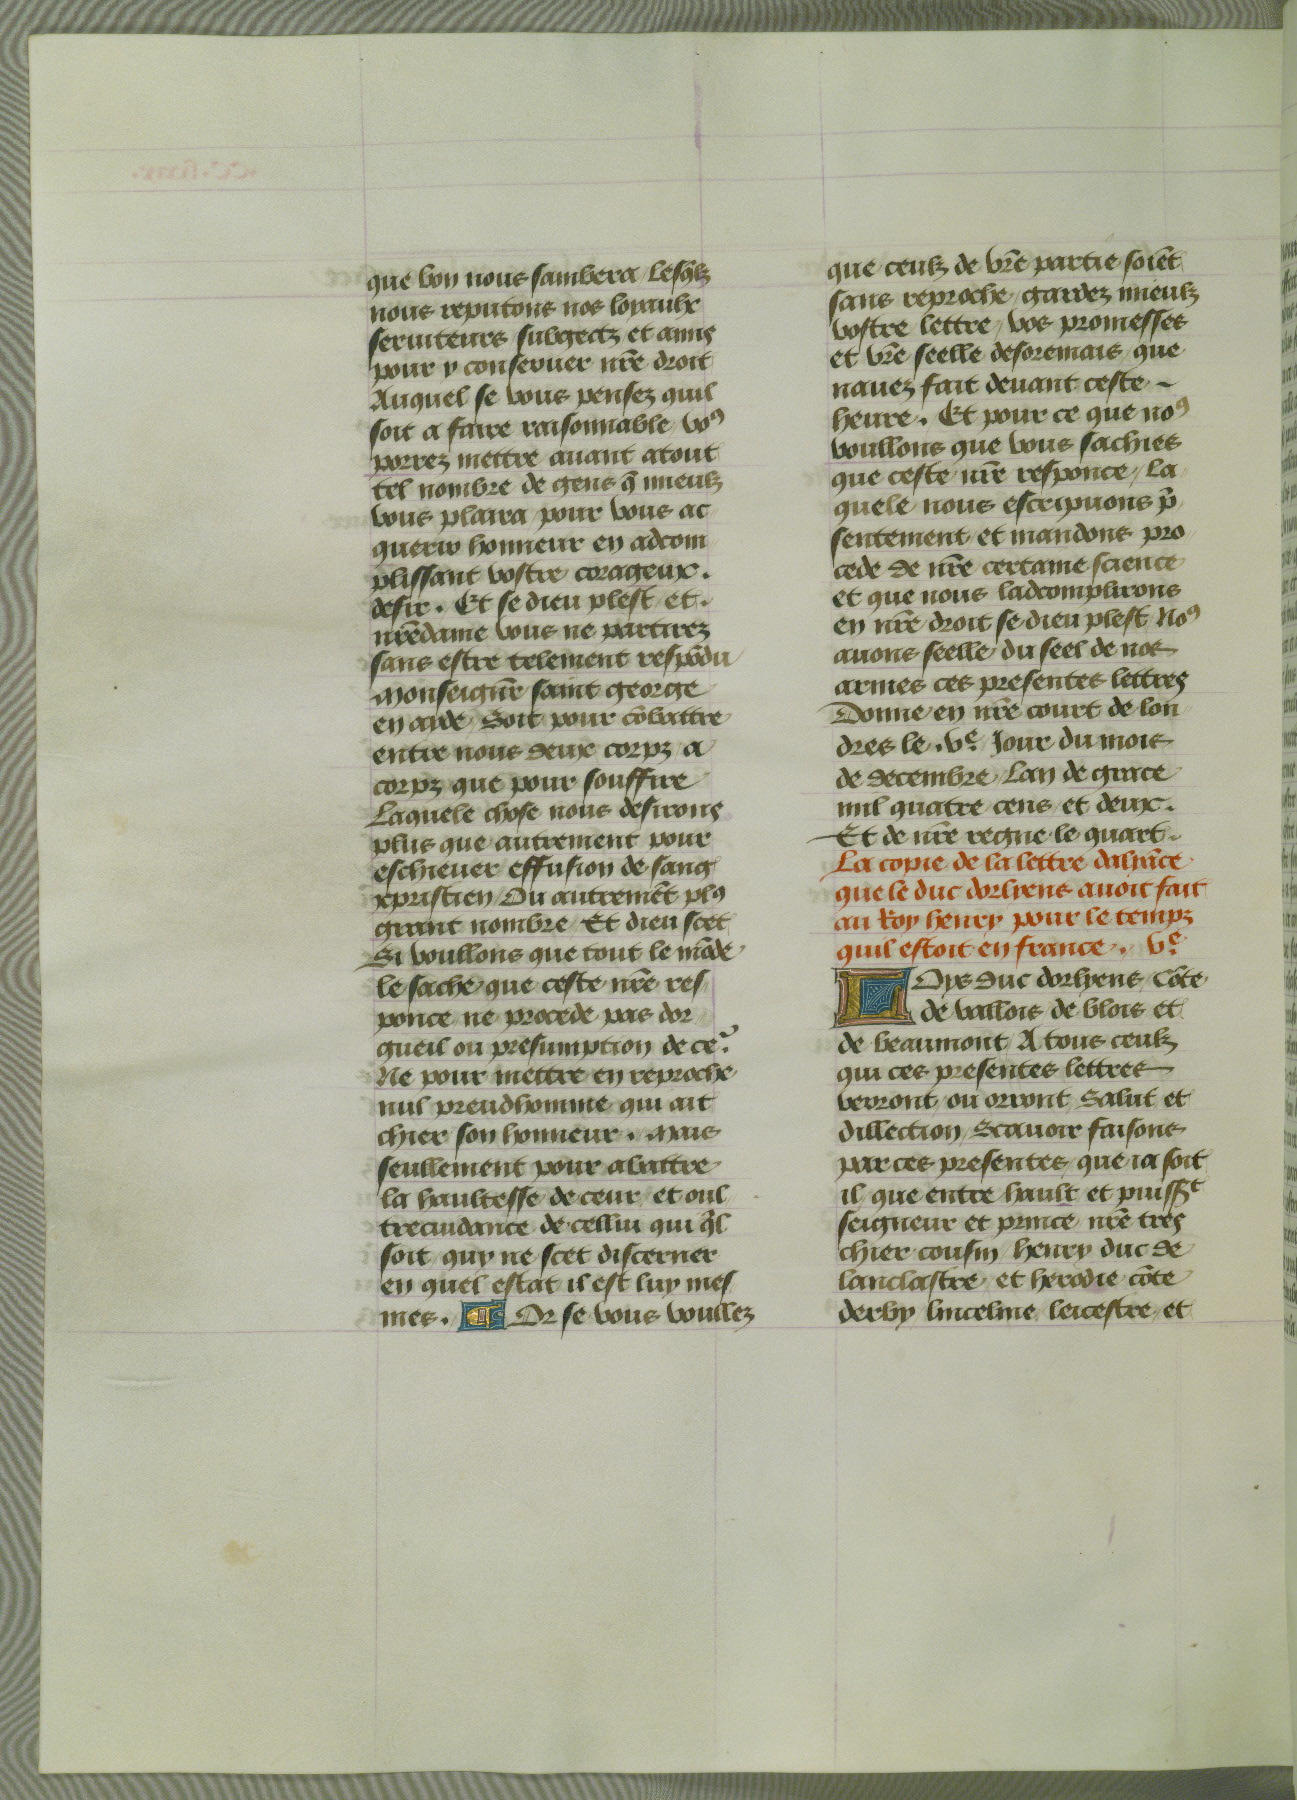 que bon nous sambera lesq̄lz
nous reputons nos loyaulx
seruiteurs subgectz et amis
pour y conseruer nr̄e droit
Auquel se vous pensez quil
soit a faire raisonnable voꝰ
porrez mettre auant atout
tel nombre de gens q̄ mieulz
vous plaira pour vous ac
querir honneur en adcom
plissant vostre corageux.
desir. Et se dieu plest et.
nr̄edame vous ne partirez
sans estre telement respōdu
Monseignr̄ saint george
en aide Soit pour cōbattre
entre nous deux corpz a
corpz que pour souffire
Laquele chose nous desirons
plus que autrement pour
eschieuer effusion de sang
xpristien Ou autremēt plꝰ
grant nombre Et dieu scet
Si voullons que tout le mōde
le sache que ceste nr̄e res
ponce ne procede pas dor
gueil ou presumption de ce.
Ne pour mettre en reproche
nul preudhomme qui ait
chier son honneur. Mais
seullement pour abattre
la haultesse de ceur et oul
trecuidance de cellui qui q̄l
soit quy ne scet discerner
en quel estat il est luy mes
mes. Or se vous voullez
que ceulz de vr̄e partie soiēt
sans reproche gardez mieulz
vostre lettre vos promesses
et vr̄e seelle desoremais que
nauez fait deuant ceste
heure. Et pour ce que noꝰ
voullons que vous sachies
que ceste nr̄e responce la
quele nous escripuons p̄
sentement et mandons pro
cede de nr̄e certaine science
et que nous ladcomplirons
en nr̄e droit se dieu plest Noꝰ
auons seelle du seel de nos
armes ces presentes lettres
Donne en nr̄e court de lon
dres le .vᵉ. Jour du mois
de decembre Lan de grace
mil quatre cens et deux.
Et de nr̄e regne le quart.
La copie de la lettre daliāce
que le duc dorlyens auoit fait
au Roy henry pour le tempz
quil estoit en france. vᵉ.
Loys duc dorlyens Cōte
de vallois de blois et
de beaumont A tous ceulz
qui ces presentes lettres
verront ou orront Salut et
dillection Scauoir faisons
par ces presentes que ia soit
il que entre hault et puissᵗ
seigneur et prince nr̄e tres
chier cousin henry duc de
lanclastre et herodie cōte
derby linceline leicestre et